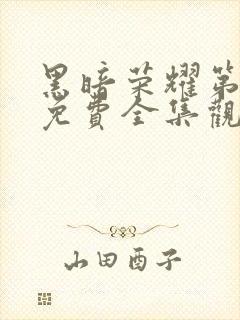 黑暗荣耀第
免費全集觀
山田酉子